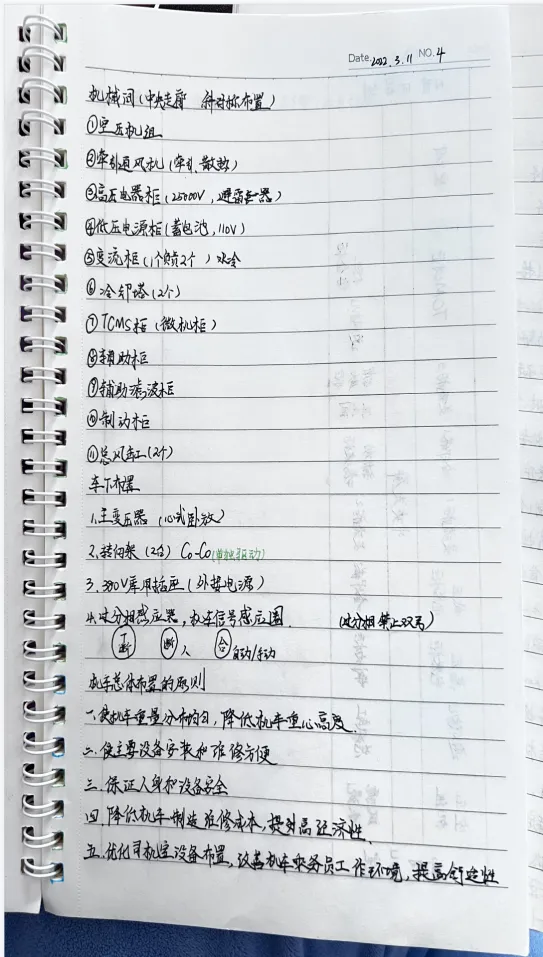 Date 2022.3.11 NO.4
机械间(中央走廊 斜对称布置)
①空压机组
②牵引通风机(牵引、散热)
③高压电器柜(25000V,避雷器)
④低压电源柜(蓄电池,110V)
⑤变流柜(1个顶2个)水冷
⑥冷却塔(2个)
⑦TCMS柜(微机柜)
⑧辅助柜
⑨辅助滤波柜
⑩制动柜
⑪总风缸(2个)
车下布置
1.主变压器(心式卧放)
2.转向架(2台)C0-C0(单轴驱动)
3.380V库用插座(外接电源)
4.过分相感应器,机车信号感应圈. (过分相禁止双弓)
断 断 人 合 自动/手动
机车总体布置的原则
一.使机车重量分布均匀,降低机车重心高度.
二.使主要设备安装和维修方便
三.保证人身和设备安全
四.降低机车制造维修成本,提升高经济性.
五.优化司机室设备布置,改善机车乘务员工作环境,提高舒适性